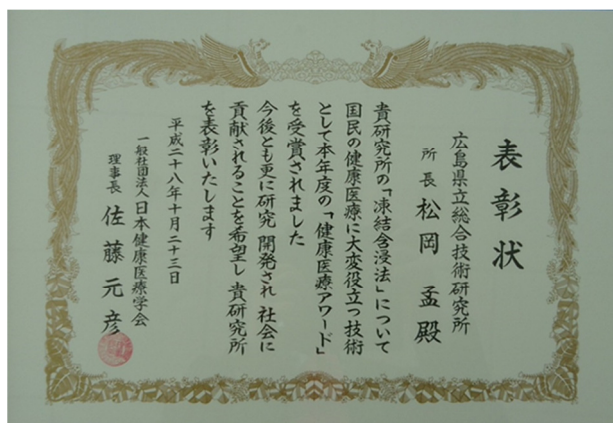 表彰状
広島県立総合技術研究所
所長 松岡 孟 殿
貴研究所の「凍結含浸法」について
国民の健康医療に大変役立つ技術
として本年度の「健康医療アワード」
を受賞されました
今後とも更に研究 開発され 社会に
貢献されることを希望し 貴研究所
を表彰いたします
平成二十八年十月二十三日
一般社団法人日本健康医療学会
理事長 佐藤元彦